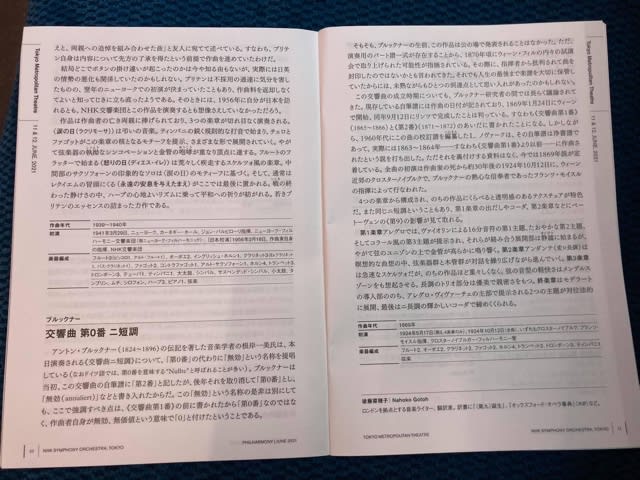 えと、両親への追悼を組み合わせた曲」と友人に宛てて述べている。すなわち、ブリテ
ン自身は内容について先方の了承を得たという前提で作曲を進めていたわけだ。
結局どこでボタンの掛け違いが起こったのかは今や知る由もないが、実際には日英
の情勢の悪化も関係していたのかもしれない。ブリテンは不採用の通達に気分を害し
たものの、翌年のニューヨークでの初演が決まっていたこともあり、作曲料を返却しなく
てよいと知ってじきに立ち直ったようである。そのときには、1956年に自分が日本を訪
れるとも、NHK交響楽団とこの作品を演奏するとも想像さえしていなかっただろう。
作品は作曲者の亡き両親に捧げられており、3つの楽章が切れ目なく演奏される。
〈涙の日(ラクリモーサ)〉は弔いの音楽。ティンパニの鋭く規則的な打音で始まり、チェロと
ファゴットがこの楽章の核となるモチーフを提示、さまざまな形で展開されていく。やが
て弦楽器の執拗なシンコペーションと金管の咆哮が重なり頂点に達する。フルートのフ
ラッターで始まる〈怒りの日(ディエス・イレ)〉は荒々しく疾走するスケルツォ風の楽章。中
間部のサクソフォーンの印象的なソロは〈涙の日〉のモティーフに基づく。そして、通常は
レクイエムの冒頭にくる〈永遠の安息を与えたまえ〉がここでは最後に置かれる。戦の終
わった静けさの中、ハープの心地よいリズムに乗って平和への祈りが紡がれる。若きブリ
テンのエッセンスの詰まった力作である。
作曲年代
1939〜1940年
初演
1941年3月29日、ニューヨーク、カーネギー・ホール、ジョン・バルビローリ指揮、ニューヨーク・フィル
ハーモニー交響楽団
[日本初演]1956年2月18日、作曲家自身
の指揮、NHK交響楽団
楽器編成
ブルックナー
交響曲 第0番 ニ短調
アントン・ブルックナー(1824〜1896)の伝記を著した音楽学者の根岸一美氏は、本
日演奏される《交響曲ニ短調》について、「第0番」の代わりに「無効」という名称を提唱
している(なおドイツ語では、第0番を意味する“Nullte”と呼ばれることが多い)。ブルックナーは
当初、この交響曲の自筆譜に「第2番」と記したが、後年それを取り消して「第0番」とし
「無効(annuliert)」などと書き入れたからだ。この「無効」という名称の是非は別にして
も、ここで強調すべき点は、《交響曲第1番》の前に書かれたから「第0番」なのではな
く、作曲者自身が無効、無価値という意味で「0」と付けたということである。
NHK SYMPHONY ORCHESTRA, TOKYO
PHILHARMONY | JUNE 2021
Tokyo Metropolitan Theatre
11 & 12. JUNE. 2021
そもそも、ブルックナーの生前、この作品は公の場で発表されることはなかった。ただ、
演奏用のパート譜一式が存在することから、1870年頃にウィーン・フィルの内々の試演
会で取り上げられた可能性が指摘されている。その際に、指揮者から批判されて曲を
封印したのではないかとも言われてきた。それでも人生の最後まで楽譜を大切に保管し
ていたからには、未熟ながらもひとつの到達点として思い入れがあったのかもしれない。
この交響曲の成立時期についても、ブルックナー研究者の間では長らく議論されて
きた。現存している自筆譜には作曲の日付が記されており、1869年1月24日にウィーン
で開始、同年9月12日にリンツで完成したことは判っている。すなわち《交響曲第1番》
(1865〜1866)と《第2番》(1871〜1872)のあいだに置かれたことになる。しかしなが
ら、1960年代にこの曲の校訂譜を編纂したL.ノヴァークは、その自筆譜は浄書譜で
あって、実際には1863〜1864年──すなわち《交響曲第1番》より以前──に作曲さ
れたという説を打ち出した。ただそれを裏付ける資料はなく、今では1869年説が定
着している。全曲の初演は作曲家の死から約30年後の1924年10月12日に、ウィーン
近郊のクロスターノイブルクで、ブルックナーの熱心な信奉者であったフランツ・モイスル
の指揮によって行なわれた。
4つの楽章から構成され、のちの作品にくらべると透明感のあるテクスチュアが特色
だ。また同じニ短調ということもあり、第1楽章の出だしやコーダ、第2楽章などにベー
トーヴェンの《第9》の影響が見て取れる。
第1楽章アレグロでは、ヴァイオリンによる16分音符の第1主題、たおやかな第2主題、
そしてコラール風の第3主題が提示され、それらが絡み合う展開部は静謐に始まるが、
やがて弦のユニゾンの上で金管が高らかに鳴り響く。第2楽章アンダンテ(変ロ長調)は
瞑想的な曲想の中、弦楽器群と木管群が対話を繰り広げながら進んでいく。第3楽章
は急速なスケルツォだが、のちの作品ほど重々しくなく、弦の音型の軽快さはメンデルス
ゾーンをも想起させる。長調のトリオ部分は優美で親密さをもつ。終楽章はモデラート
の導入部ののち、アレグロ・ヴィヴァーチェの主部で提示される2つの主題が対位法的
に展開、最後はニ長調の輝かしいコーダで締めくくられる。
作曲年代
1869年
初演
楽器編成
後藤菜穂子| Nahoko Gotoh
TOKYO METROPOLITAN THEATRE
NHK SYMPHONY ORCHESTRA, TOKYO
Tokyo Metropolitan Theatre
11 & 12. JUNE. 2021